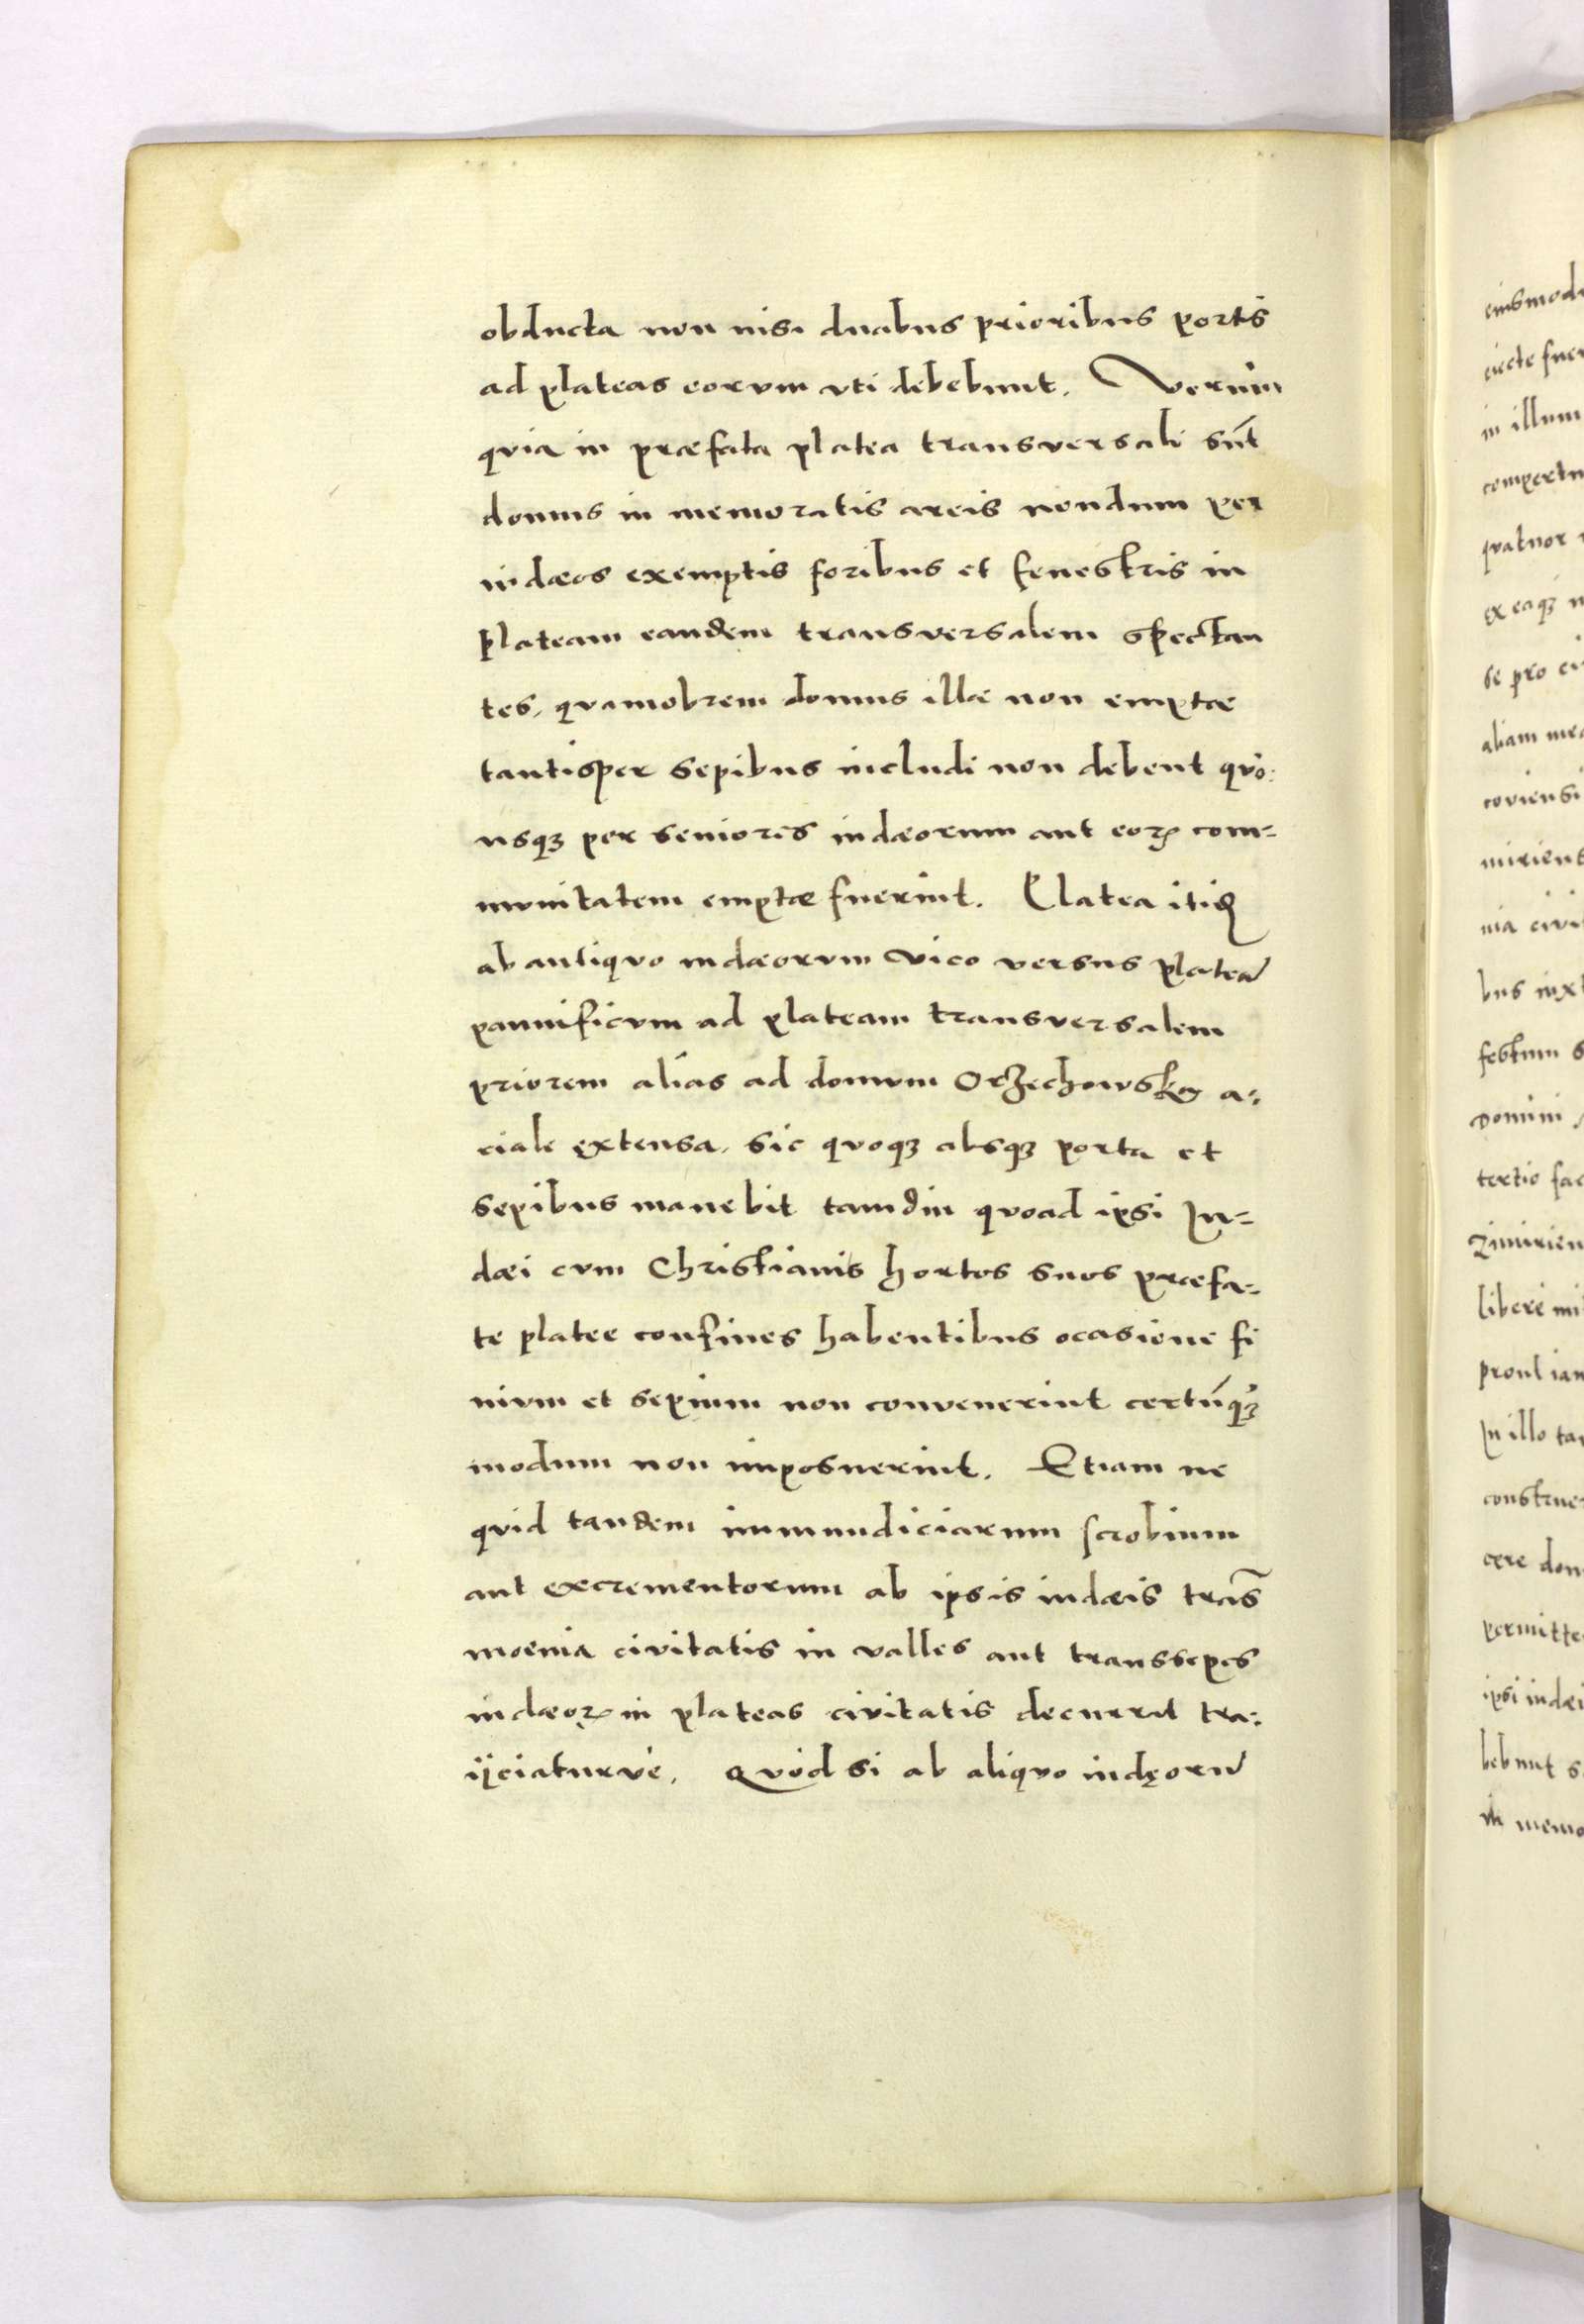 obducta non nisi duabus prioribus portis
ad plateas eorum uti debebunt. Verum
quia in præfata platea transversali sūt
domus in memoratis areis nondum per
iudæos exemptis foribus et fenestris in
plateam eandem transversalem spectan
tes, quamobrem domus illæ non emptæ
tantisper sepibus includi non debent quo-
usqꝫ per seniores iudæorum aut eoꝝ com-
munitatem emptæ fuerint. Platea itidē
ab antiquo iudæorum vico versus plateā
pannificum ad plateam transversalem
priorem aliàs ad domum Orzechowsko a-
ciale extensa, sic quoqꝫ absqꝫ porta et
sepibus manebit tamdiu quoad ipsi Iu-
dæi cum Christianis hortos suos præfa-
te platee confines habentibus ocasione fi
nium et sepium non convenerint certūqꝫ
modum non imposuerint. Etiam ne
quid tandem immundiciarum scrobium
aut excrementorum ab ipsis iudæis trās
moenia civitatis in valles aut transsepes
iudæoꝝ in plateas civitatis decurrat tra-
ijciaturve. Quòd si ab aliquo iudęorū
eiusmodi
in illum
quatuor
ex eaqꝫ
se pro
aliam
coviensi
festum
Domini
tertio
libere
In illo
cere
ipsi iudæi